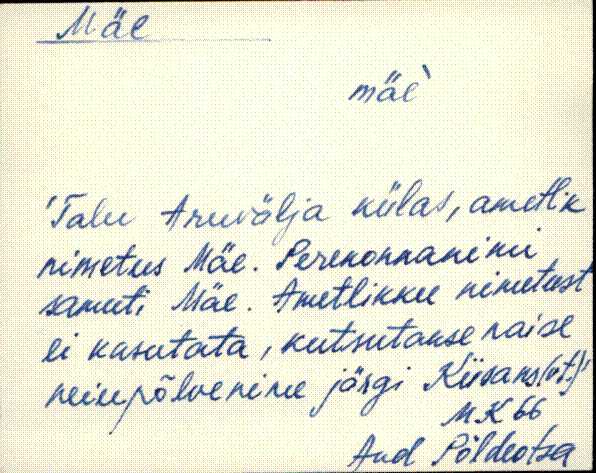 Mäe
mäe`
'Talu Aruvälja külas, ametlik
nimetus Mäe. Perekonnanimi
samuti Mäe. Ametlikku nimetust
ei kasutata, kutsutakse naise
neiupõlvenime järgi Kiisans (vt.)'
MK 66
And Põldeotsa